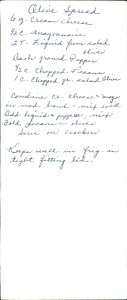 Olive Spread
6 oz. Cream cheese
1/2 C. Mayonnaise
2 T. Liquid from salad
olives
Dash ground Pepper
1/2 C. Chopped Pecans
1 C. Chopped gr. salad olives
Combine Cr. Cheese & mayo
in med. bowl - mix well
Add liquid & pepper, mix
Fold pecans & olives
Serve on crackers
Keeps well in frig. in
tight fitting lid.